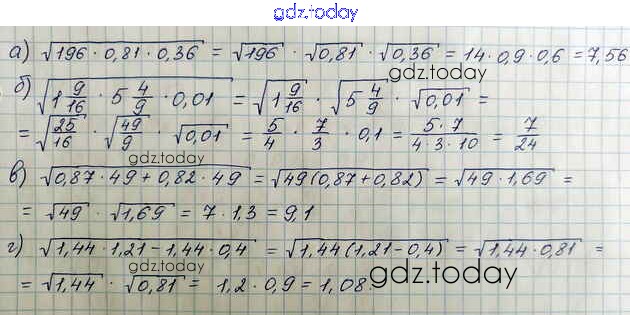 gdz.today
а) √(196 · 0,81 · 0,36) = √196 · √0,81 · √0,36 = 14 · 0,9 · 0,6 = 7,56
gdz.today
б) √(1 9/16 · 5 4/9 · 0,01) = √(1 9/16) · √(5 4/9) · √0,01 =
= √(25/16) · √(49/9) · √0,01 = 5/4 · 7/3 · 0,1 = (5 · 7)/(4 · 3 · 10) = 7/24
gdz.today
gdz.today
в) √(0,87 · 49 + 0,82 · 49) = √(49(0,87 + 0,82)) = √(49 · 1,69) =
= √49 · √1,69 = 7 · 1,3 = 9,1
gdz.today
г) √(1,44 · 1,21 - 1,44 · 0,4) = √(1,44(1,21 - 0,4)) = √(1,44 · 0,81) =
gdz.today
gdz.today
= √1,44 · √0,81 = 1,2 · 0,9 = 1,08.